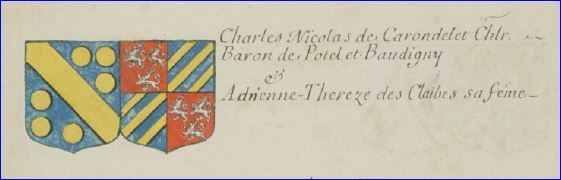 Charles Nicolas de Carondelet Chlr.
Baron de Potel et Baudigny
&
Adrienne-Thereze des Claibes sa fẽme